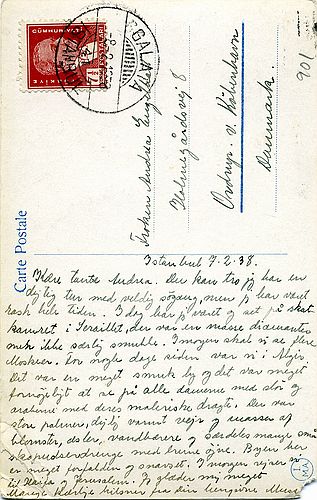 TÜRKİYE CUMHURİYETİ
GALATA
901
Frøken Andrea
Holmegårdsvej 8
Ordrup. v. København
Danmark.
Carte Postale
Istanbul 7.2.38.
Kære tante Andrea. Du kan tro jeg har en
dejlig tur med veldig søgang, men jeg har været
rask hele tiden. I dag har jeg været og set på skat
kamret i Seraillet, der var en masse diamanter
men ikke særlig smukke. I morgen skal vi se flere
Moskeer. For nogle dage siden var vi i
Det var en meget smuk by og det var meget
fornøjeligt at se på alle damerne med slør og
araberne med deres maleriske dragt. Der var
store palmer, dejlig varmt vejr og masser af
blomster, æsler, vandbærere og særdeles mange små
skopudserdrenge med brune øjne. Byen her
er meget forfalden og snavset. I morgen rejser
til Haifa og Jerusalem. Jeg glæder mig meget
Mange kærlige hilsner fra din
MA